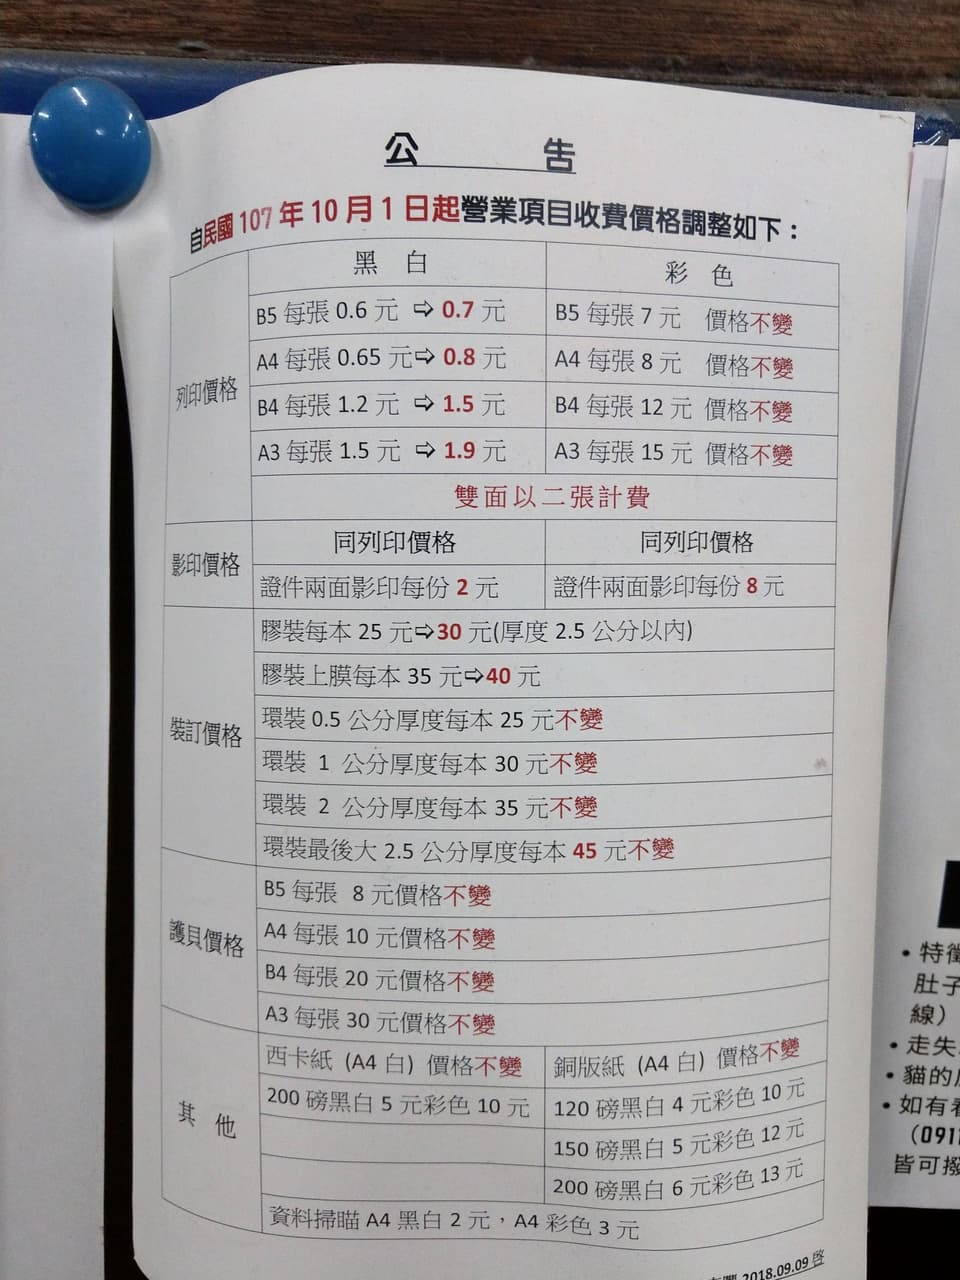 公 告
自民國 107 年 10 月 1 日起營業項目收費價格調整如下：
黑 白 彩 色
列印價格
B5 每張 0.6 元 ⇨ 0.7 元 B5 每張 7 元 價格不變
A4 每張 0.65 元⇨ 0.8 元 A4 每張 8 元 價格不變
B4 每張 1.2 元 ⇨ 1.5 元 B4 每張 12 元 價格不變
A3 每張 1.5 元 ⇨ 1.9 元 A3 每張 15 元 價格不變
雙面以二張計費
影印價格
同列印價格 同列印價格
證件兩面影印每份 2 元 證件兩面影印每份 8 元
裝訂價格
膠裝每本 25 元⇨30 元(厚度 2.5 公分以內)
膠裝上膜每本 35 元⇨40 元
環裝 0.5 公分厚度每本 25 元不變
環裝 1 公分厚度每本 30 元不變
環裝 2 公分厚度每本 35 元不變
環裝最後大 2.5 公分厚度每本 45 元不變
護貝價格
B5 每張 8 元價格不變
A4 每張 10 元價格不變
B4 每張 20 元價格不變
A3 每張 30 元價格不變
其 他
西卡紙 (A4 白) 價格不變 銅版紙 (A4 白) 價格不變
200 磅黑白 5 元彩色 10 元 120 磅黑白 4 元彩色 10 元
150 磅黑白 5 元彩色 12 元
200 磅黑白 6 元彩色 13 元
資料掃瞄 A4 黑白 2 元，A4 彩色 3 元
2018.09.09 啓
• 特徵
肚子
線）
• 走失
• 貓的
• 如有看
（091
皆可撥